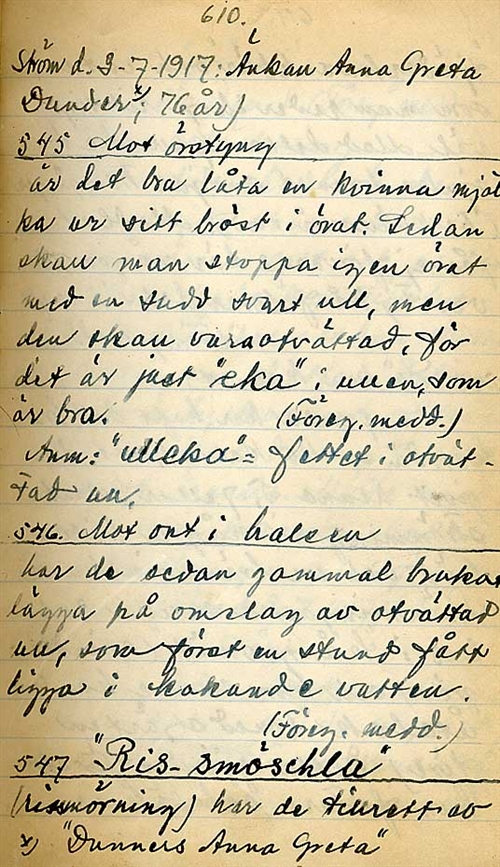 610.
Ström d. 3-7-1917: Änkan Anna Greta
Dunder x); 76 år)
545 Mot örstyng
är det bra låta en kvinna mjöl
ka ur sitt bröst i örat. Sedan
skall man stoppa igen örat
med en sudd svart ull, men
den skall vara otvättad, för
det är just "eka" i ullen, som
är bra. (Föreg. medd.)
Anm: "ulleka" = fettet i otvät-
tad ull.
546. Mot ont i halsen
har de sedan gammal brukat
lägga på omslag av otvättad
ull, som först en stund fått
ligga i kokande vatten.
(Föreg. medd.)
547 "Ris-smöschla"
(rissmörning) har de tillrett av
x) "Dunners Anna Greta"